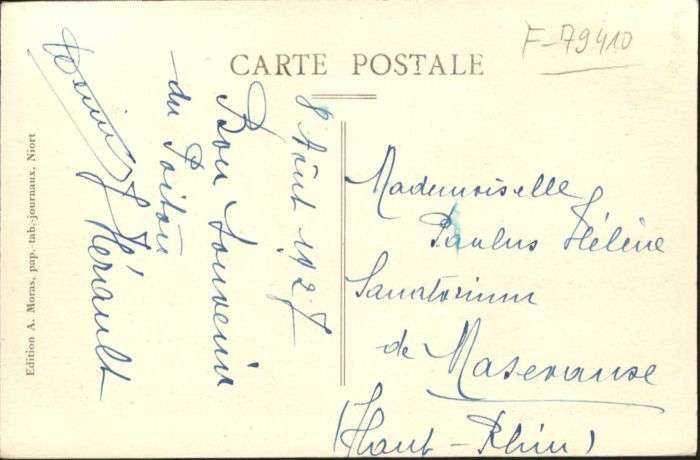 F-79410
CARTE POSTALE
8 Août 1927
Bon Souvenir
du Poitou
J Hérault
Mademoiselle
Paulus Hélène
Sanatorium
de Masevause
(Haut-Rhin)
Edition A. Moras, pap.-tab.-journaux, Niort